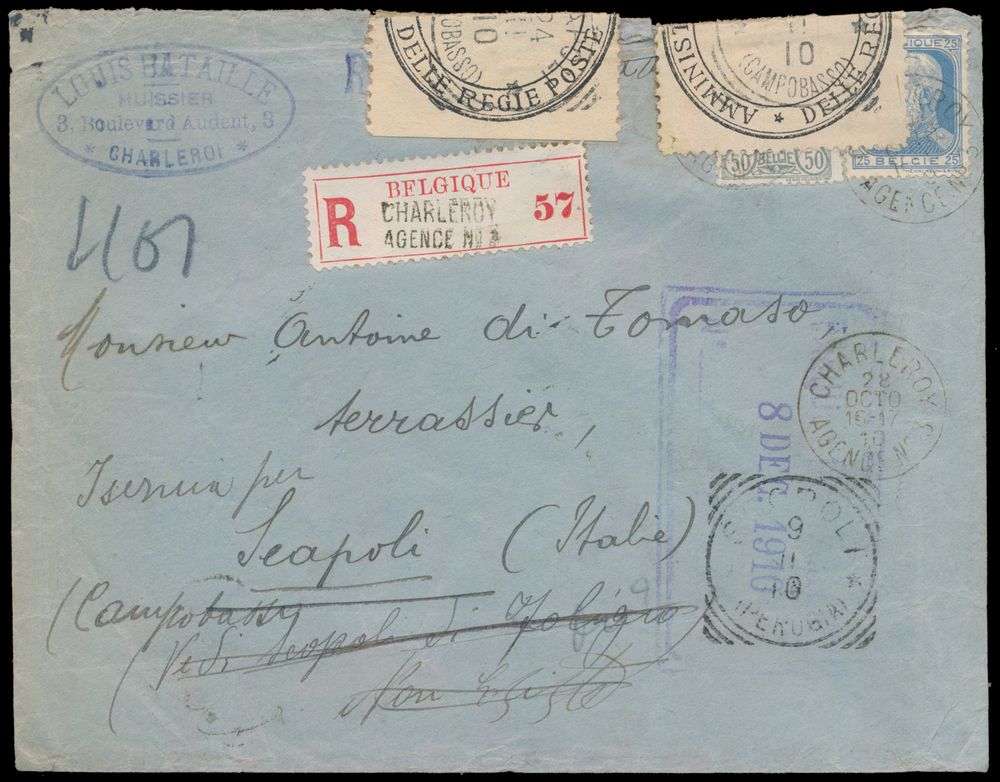 LOUIS BATAILLE
HUISSIER
3, Boulevard Audent, 3
* CHARLEROI *
R
24
11
10
(CAMPOBASSO)
DELLE REGIE POSTE
10
(CAMPOBASSO)
AMMINIST
* DELLE REG
50 BELGIE 50
25
25 BELGIE 25
AGENCE N
R
BELGIQUE
CHARLEROY
AGENCE No 3
57
1101
Monsieur Antoine di Tomaso
terrassier,
Isernia per
Scapoli (Italie)
(Campobasso
(Vedi Scopoli di Foligno
Non Esiste
8 DEC. 1910
CHARLEROY
28
OCTO
16-17
10
AGENCE No 3
SCOPOLI
9
11
10
(PERUGIA)